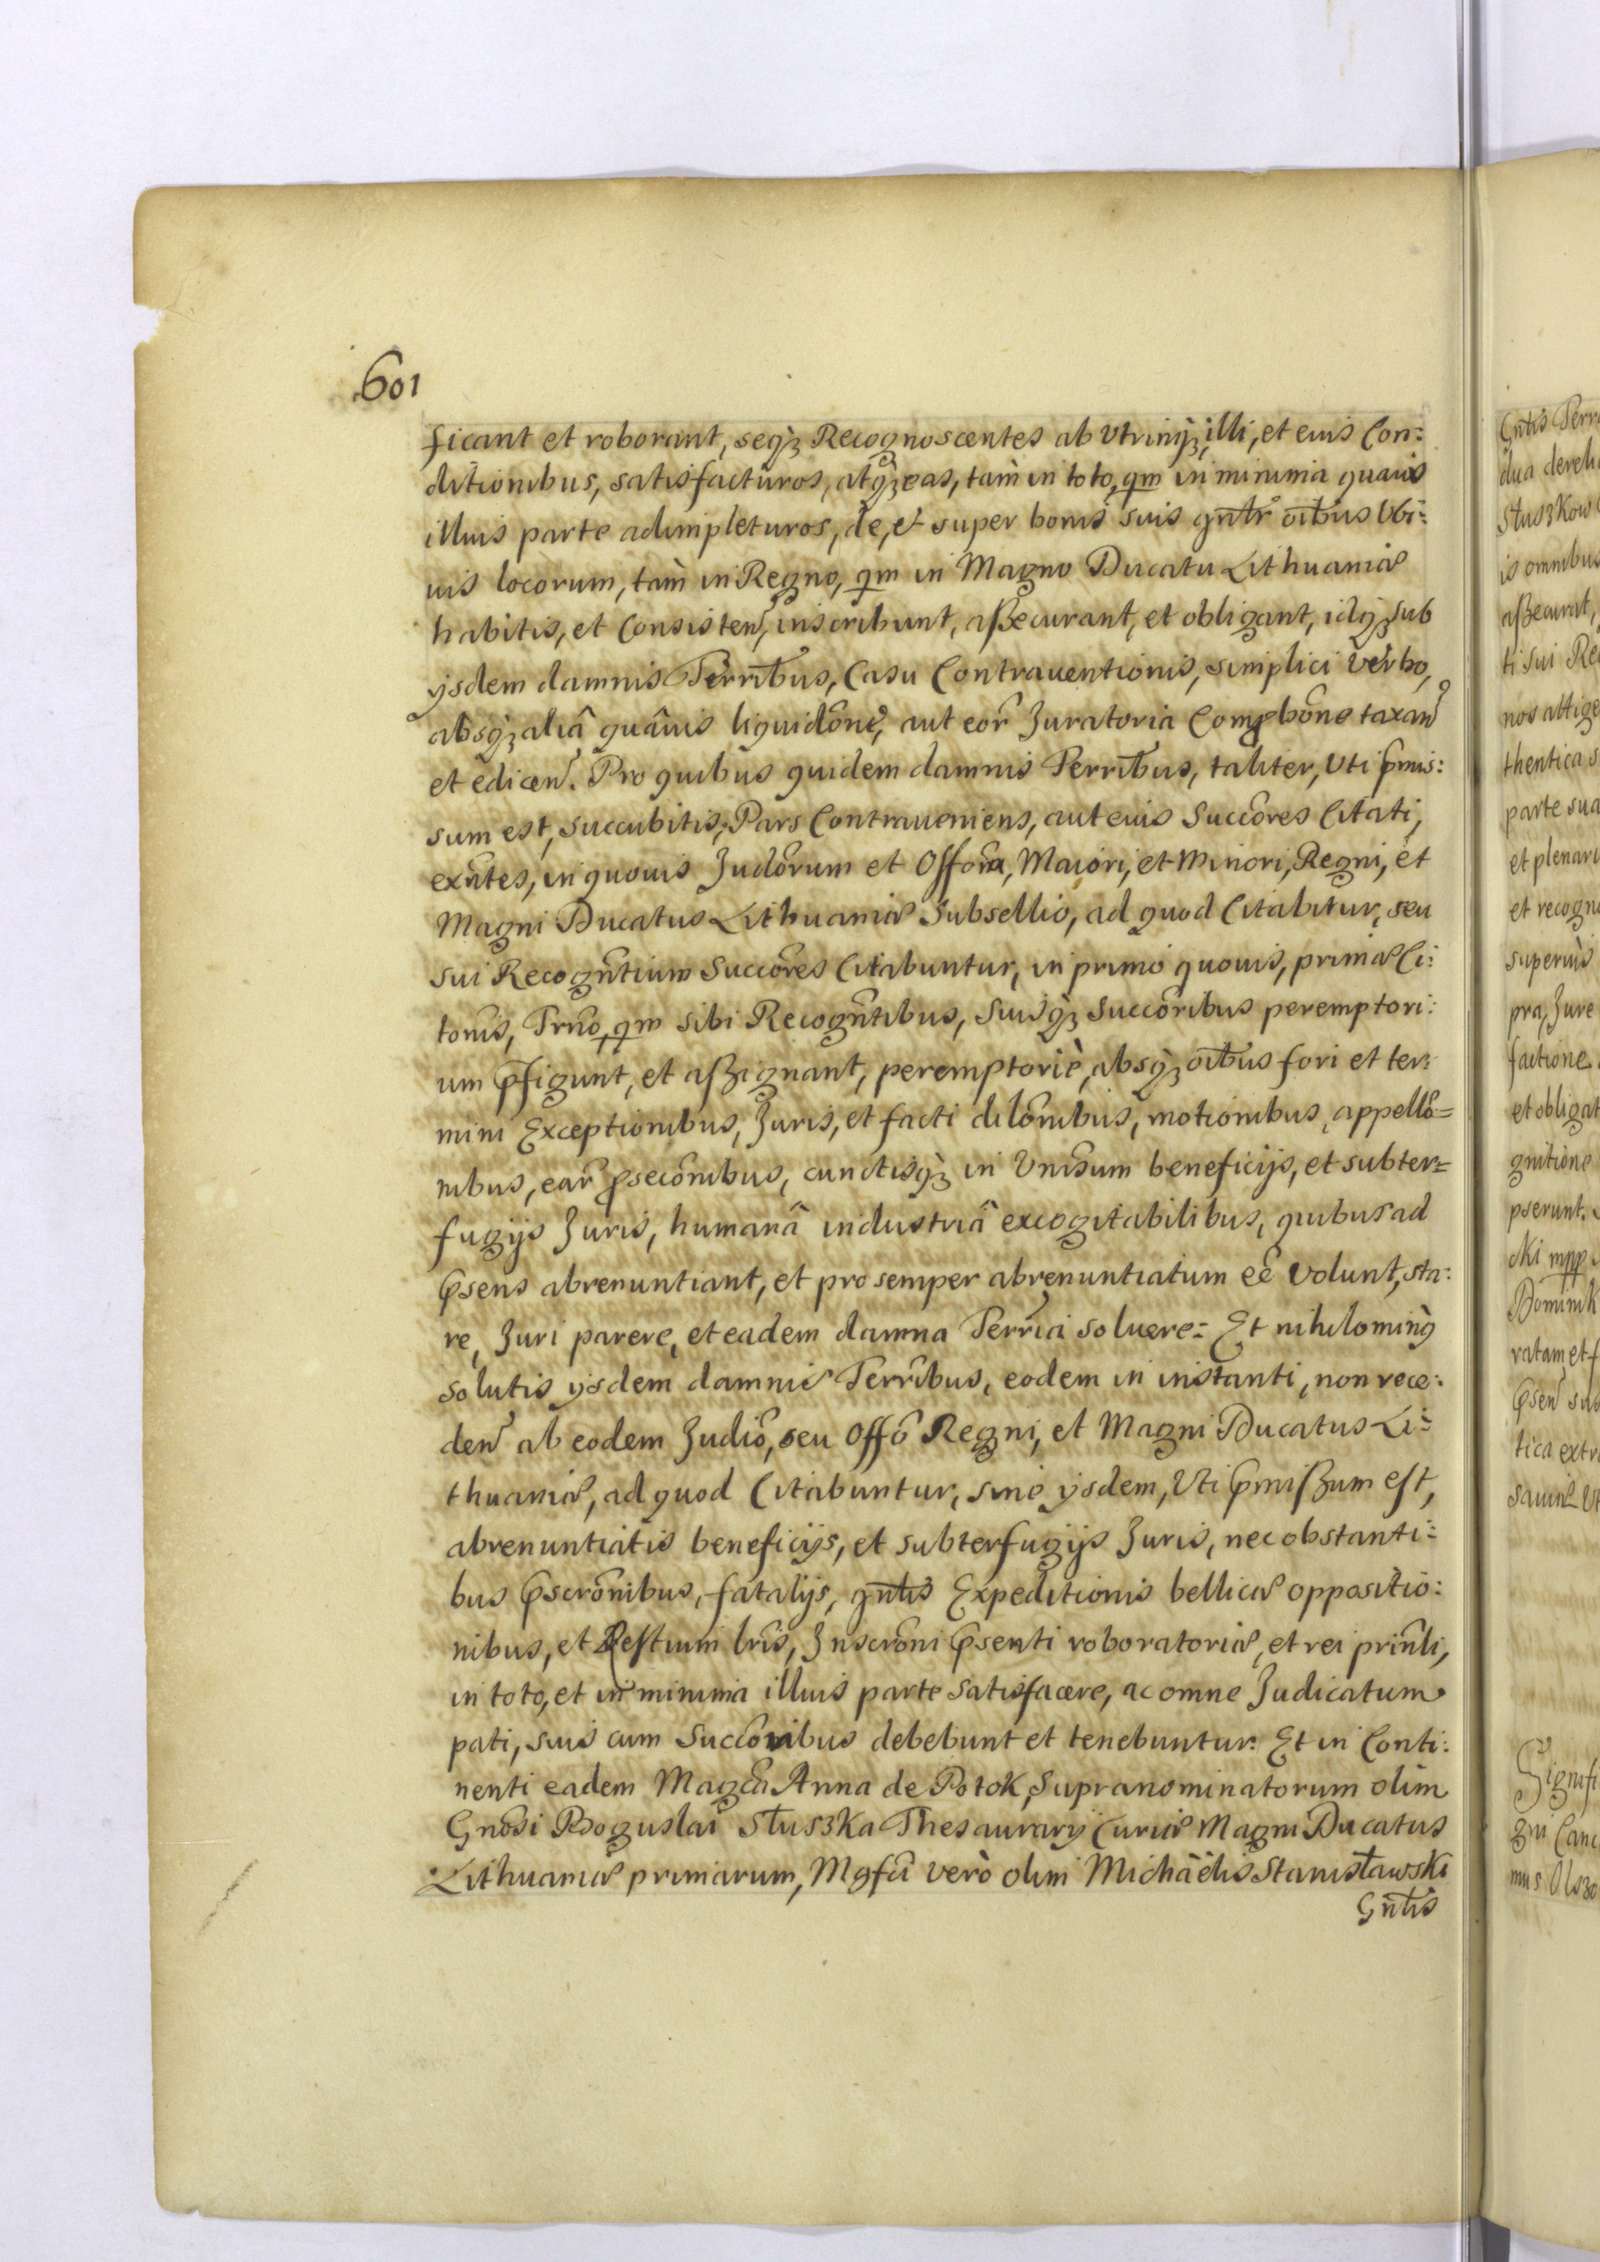 601
ficant et roborant, seqз Recognoscentes ab utrinqз, illi, et eius Con:
ditionibus, satisfacturos, atqз eas, tàm in toto, qm in minima quauis
illius parte adimpleturos, de, et super bonis suis gnlr oibus Ubi:
uis locorum, tàm in Regno, qm in Magno Ducatu Lithuaniæ
habitis, et Consisten, inscribunt, aßecurant, et obligant, idqз sub
ijsdem damnis Terribus, Casu Contrauentionis, simplici verbo,
absqз aliâ quâuis liquidõne, aut eor Juratoria Comprbõne taxan
et edicen. Pro quibus quidem damnis Terribus, taliter, uti pmis:
sum est, succubitis, Pars Contraueniens, aut eius Succõres Citati,
exntes, in quouis Judõrum et Offõru, Maiori, et Minori, Regni, et
Magni Ducatus Lithuaniæ Subsellio, ad quod Citabitur, seu
sui Recogntium Succõres Citabuntur, in primo quouis, primæ Ci:
tonis, Trno, qm sibi Recogntibus, Suisqз Succõribus peremptori:
um pfigunt, et aßignant, peremptoriè, absqз oibus fori et ter:
mini Exceptionibus, Juris, et facti dilõnibus, motionibus, appellõ=
nibus, ear psecõnibus, cunctisqз in Unirsum beneficijs, et subter=
fugijs Juris, humanâ industriâ excogitabilibus, quibus ad
psens abrenuntiant, et pro semper abrenuntiatum eê volunt, sta:
re, Juri parere, et eadem damna Terria soluere: Et nihilominq
solutis ijsdem damnis Terribus, eodem in instanti, non rece:
den ab eodem Judiõ, seu Offõ Regni, et Magni Ducatus Li:
thuaniæ, ad quod Citabuntur, sine ijsdem, Uti pmißum est,
abrenuntiatis beneficijs, et subterfugijs Juris, nec obstanti:
bus pscrõnibus, fatalijs, gnlis Expeditionis bellicæ oppositio:
nibus, et Restium lris, Inscrõni psenti roboratoriæ, et rei prinli,
in toto, et in minima illius parte satisfacere, ac omne Judicatum
pati, suis cum Succõribus debebunt et tenebuntur: Et in Conti:
nenti eadem Magca Anna de Potok, Supranominatorum olim
Gnosi Boguslai Słuszka Thesaurarij Curiæ Magni Ducatus
Lithuaniæ primarum, Mgfci verò olim Michaëlis Stanisławski
Gnlis

Gnlis Terr
dua dereli
Słuszkow
is omnibus
aßecurat,
ti sui Re
nos attige
thentica s
parte sua
et plenari
et recogn
superiùs
pra, Jure
factione
et obligat
gnitione
pserunt.
cki mpp
Dominik
ratam et f
psen sub
tica extra
Signifi
gni Canc
mus Olszo